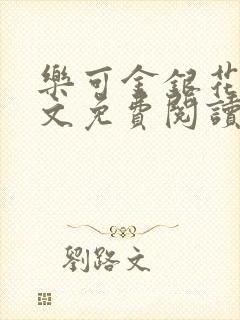 樂可金銀花
文免費閱讀
劉路文